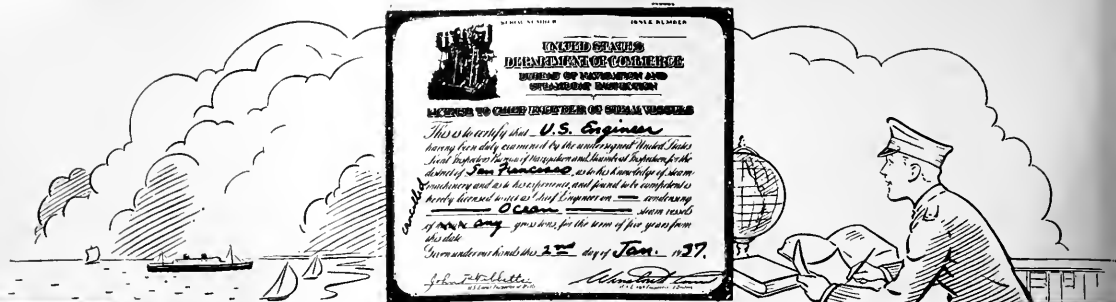 SERIAL NUMBER ISSUE NUMBER
UNITED STATES
DEPARTMENT OF COMMERCE
BUREAU OF NAVIGATION AND
STEAMBOAT INSPECTION
LICENSE TO CHIEF ENGINEER OF STEAM VESSELS
This is to certify that U.S. Engineer
having been duly examined by the undersigned United States
Local Inspectors Bureau of Navigation and Steamboat Inspection, for the
district of San Francisco, as to his knowledge of steam
machinery and as to his experience, and found to be competent is
hereby licensed to act as Chief Engineer on — condensing
Ocean steam vessels
of any gross tons, for the term of five years from
this date.
Given under our hands this 2nd day of Jan. 1937.
cancelled
John